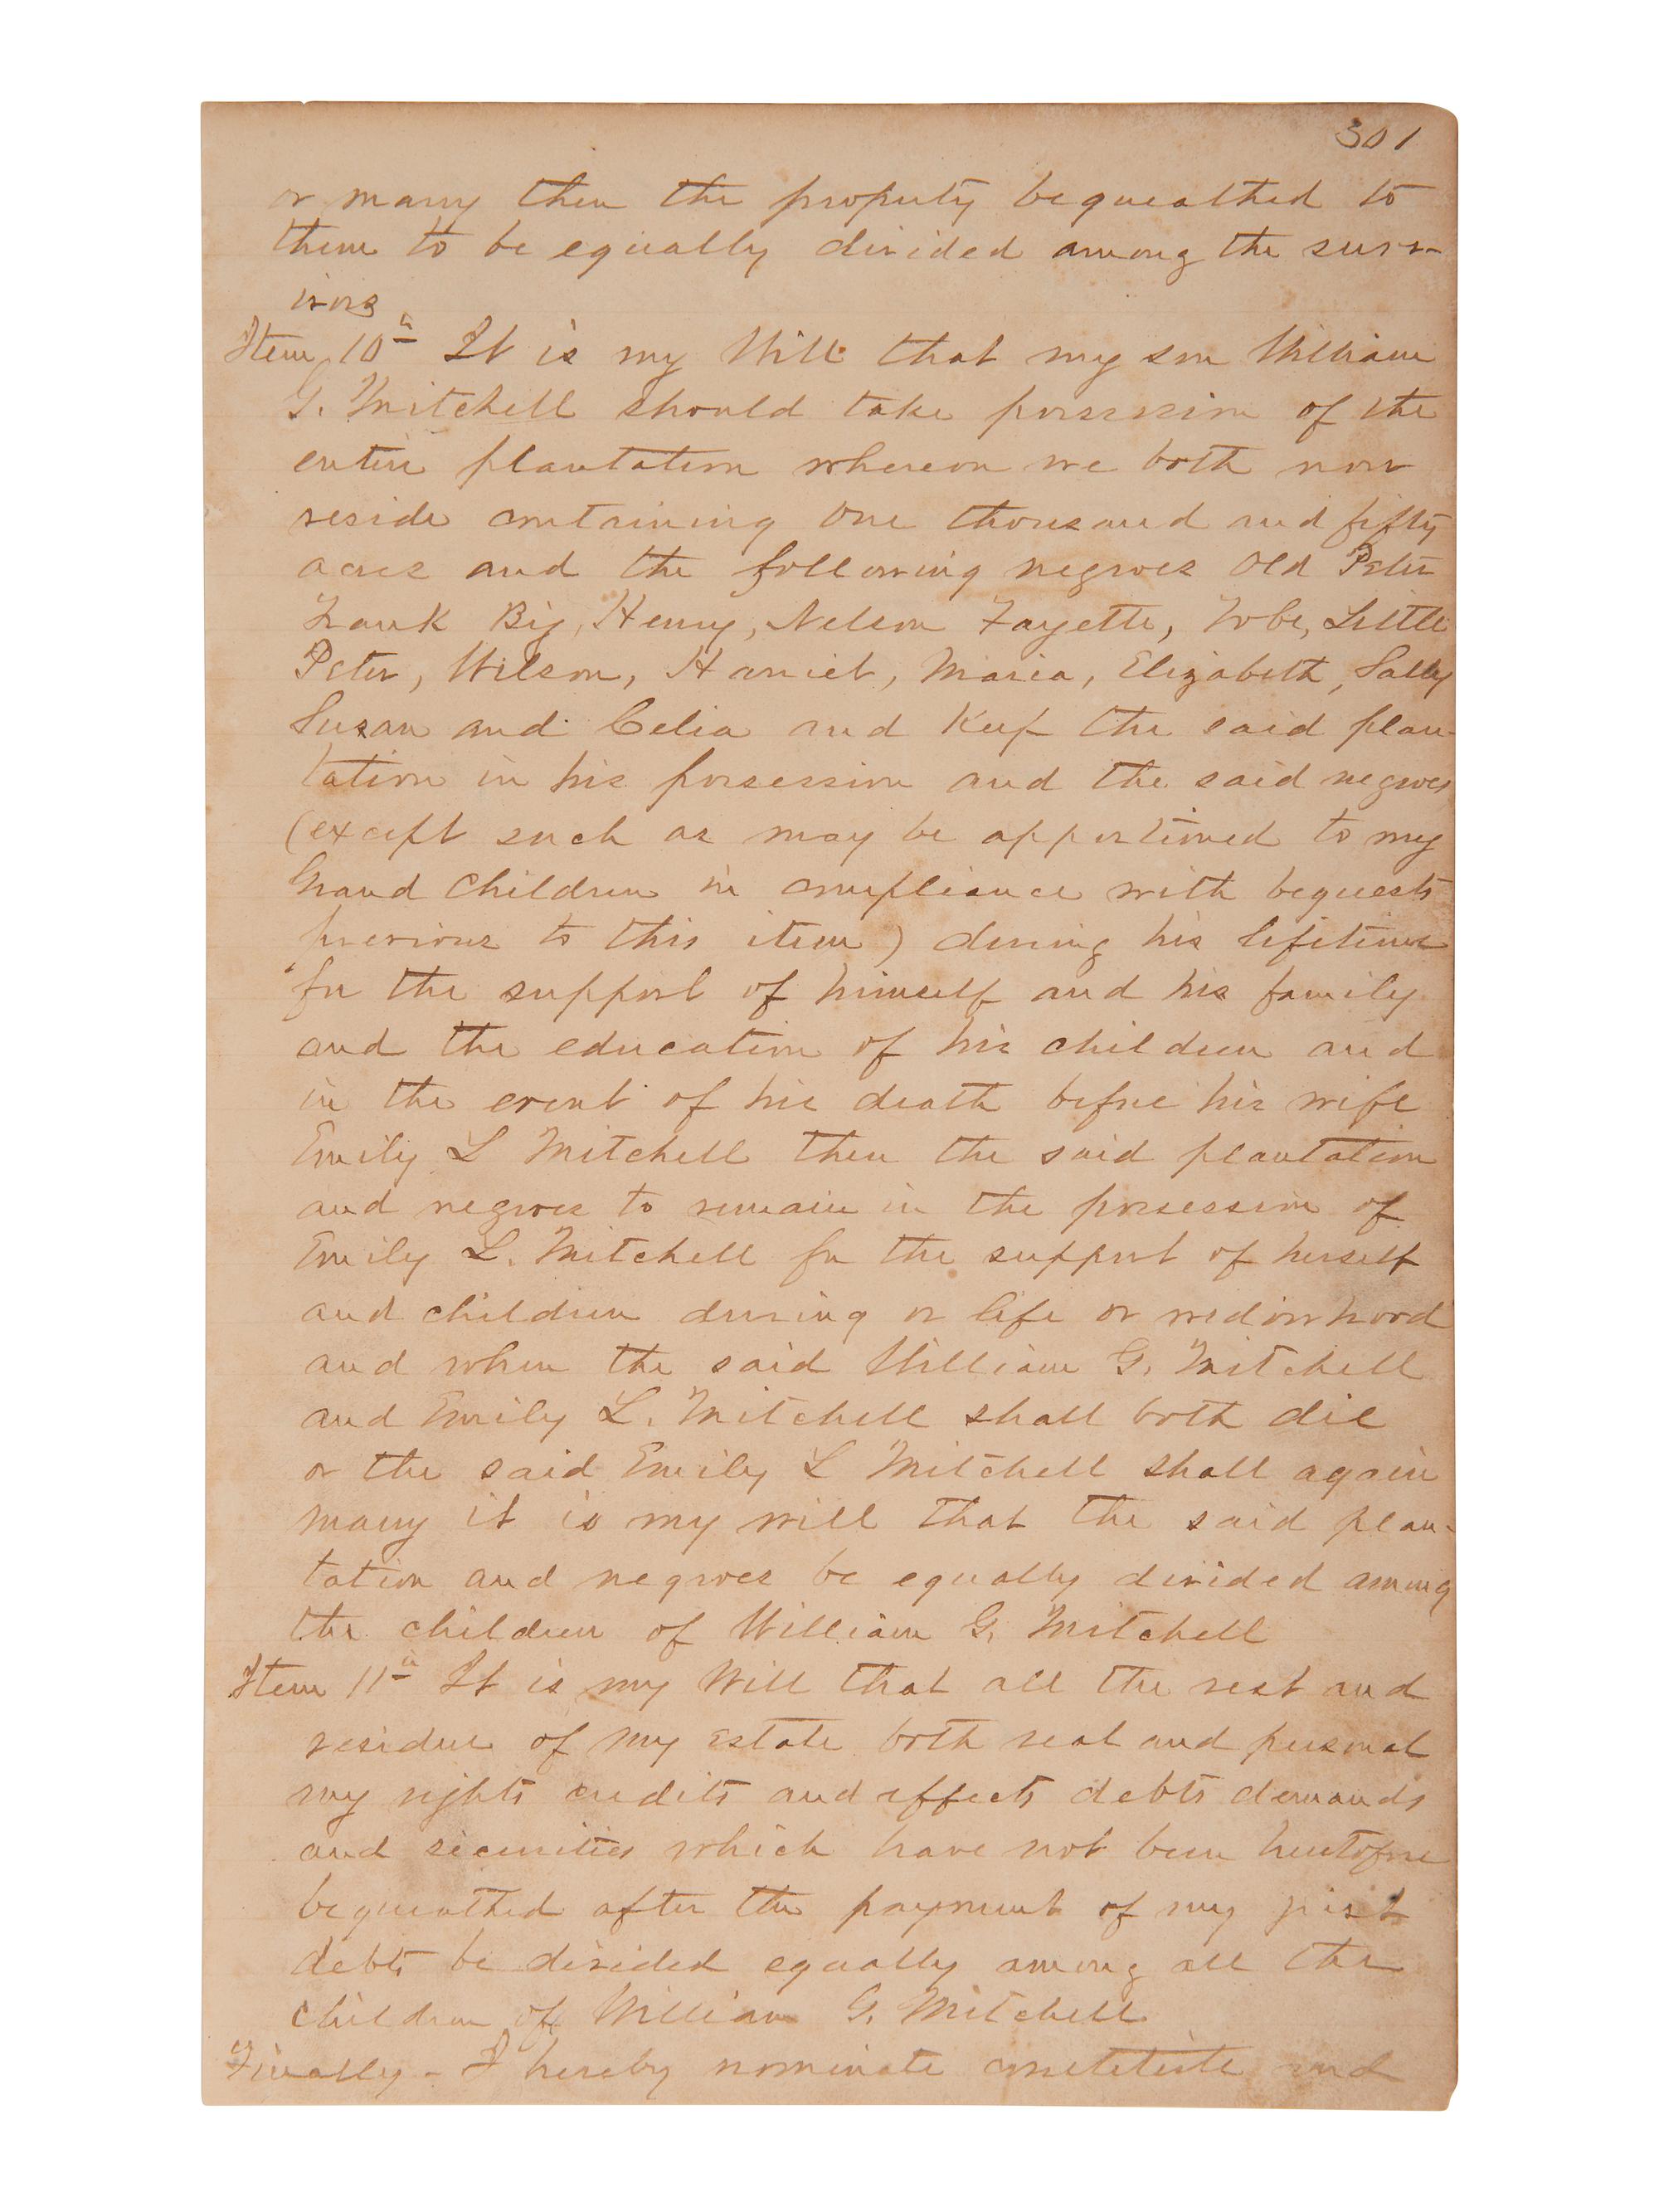 301
or marry then the property bequeathed to
them to be equally divided among the surv-
ivors
Item 10th It is my Will that my son William
G. Mitchell should take possession of the
entire plantation whereon we both now
reside containing One thousand and fifty
acres and the following negroes Old Peter
Frank Big, Henry, Nelson Fayette, Tobe, Little
Peter, Wilson, Harriet, Maria, Elizabeth, Sally
Susan and Celia and Keep the said plan-
tation in his possession and the said negroes
(except such as may be apportioned to my
Grand Children in compliance with bequests
previous to this item) during his lifetime
for the support of himself and his family
and the education of his children and
in the event of his death before his wife
Emily L Mitchell then the said plantation
and negroes to remain in the possession of
Emily L. Mitchell for the support of herself
and children during or life or widowhood
and when the said William G. Mitchell
and Emily L. Mitchell shall both die
or the said Emily L Mitchell shall again
marry it is my will that the said plan-
tation and negroes be equally divided among
the children of William G. Mitchell
Item 11th It is my Will that all the rest and
residue of my Estate both real and personal
my rights credits and effects debts demands
and securities which have not been heretofore
bequeathed after the payment of my just
debts be divided equally among all the
children of William G. Mitchell
Finally - I hereby nominate constitute and